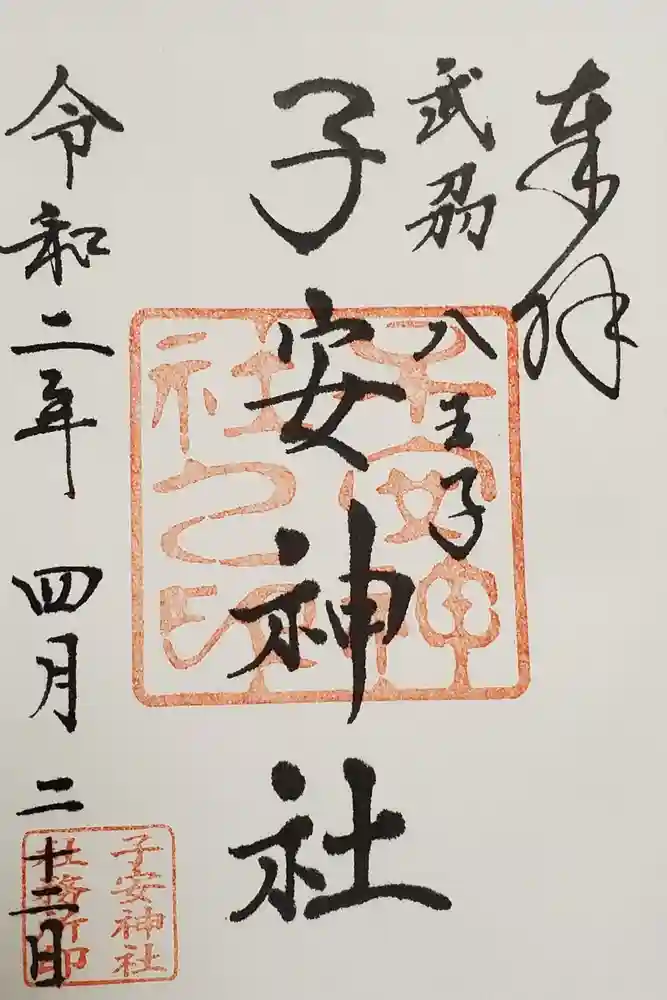 奉拝
武州
八王子
子安神社
令和二年 四月 二十二日
子安神社之印
子安神社
社務所印